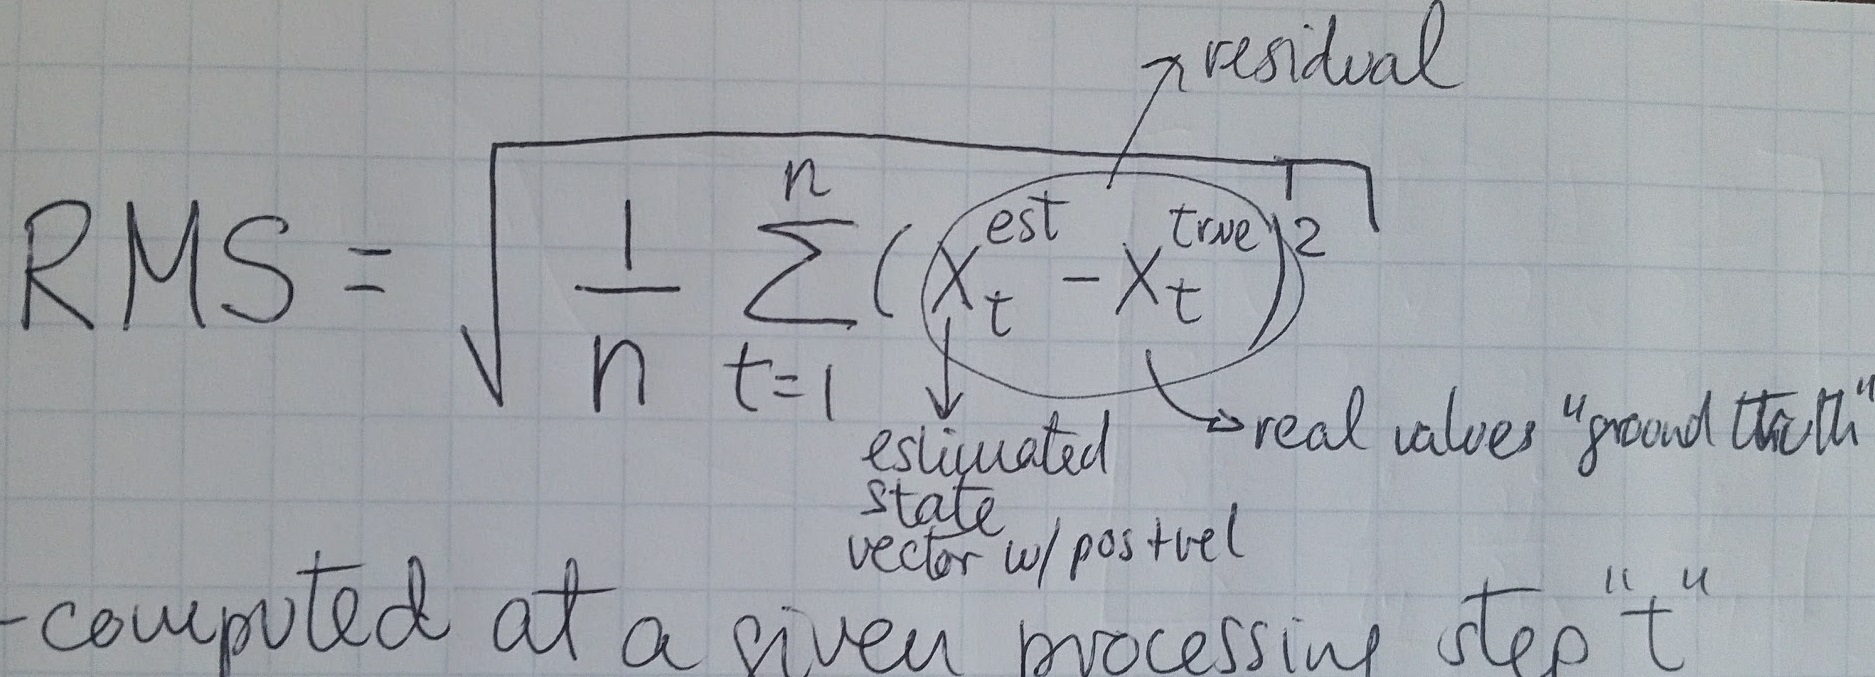 residual
RMS = √ 1/n n Σ t=1 (x_t^est - x_t^true)^2
estimated
state
vector w/ pos+vel
real values "ground truth"
-computed at a given processing step "t"